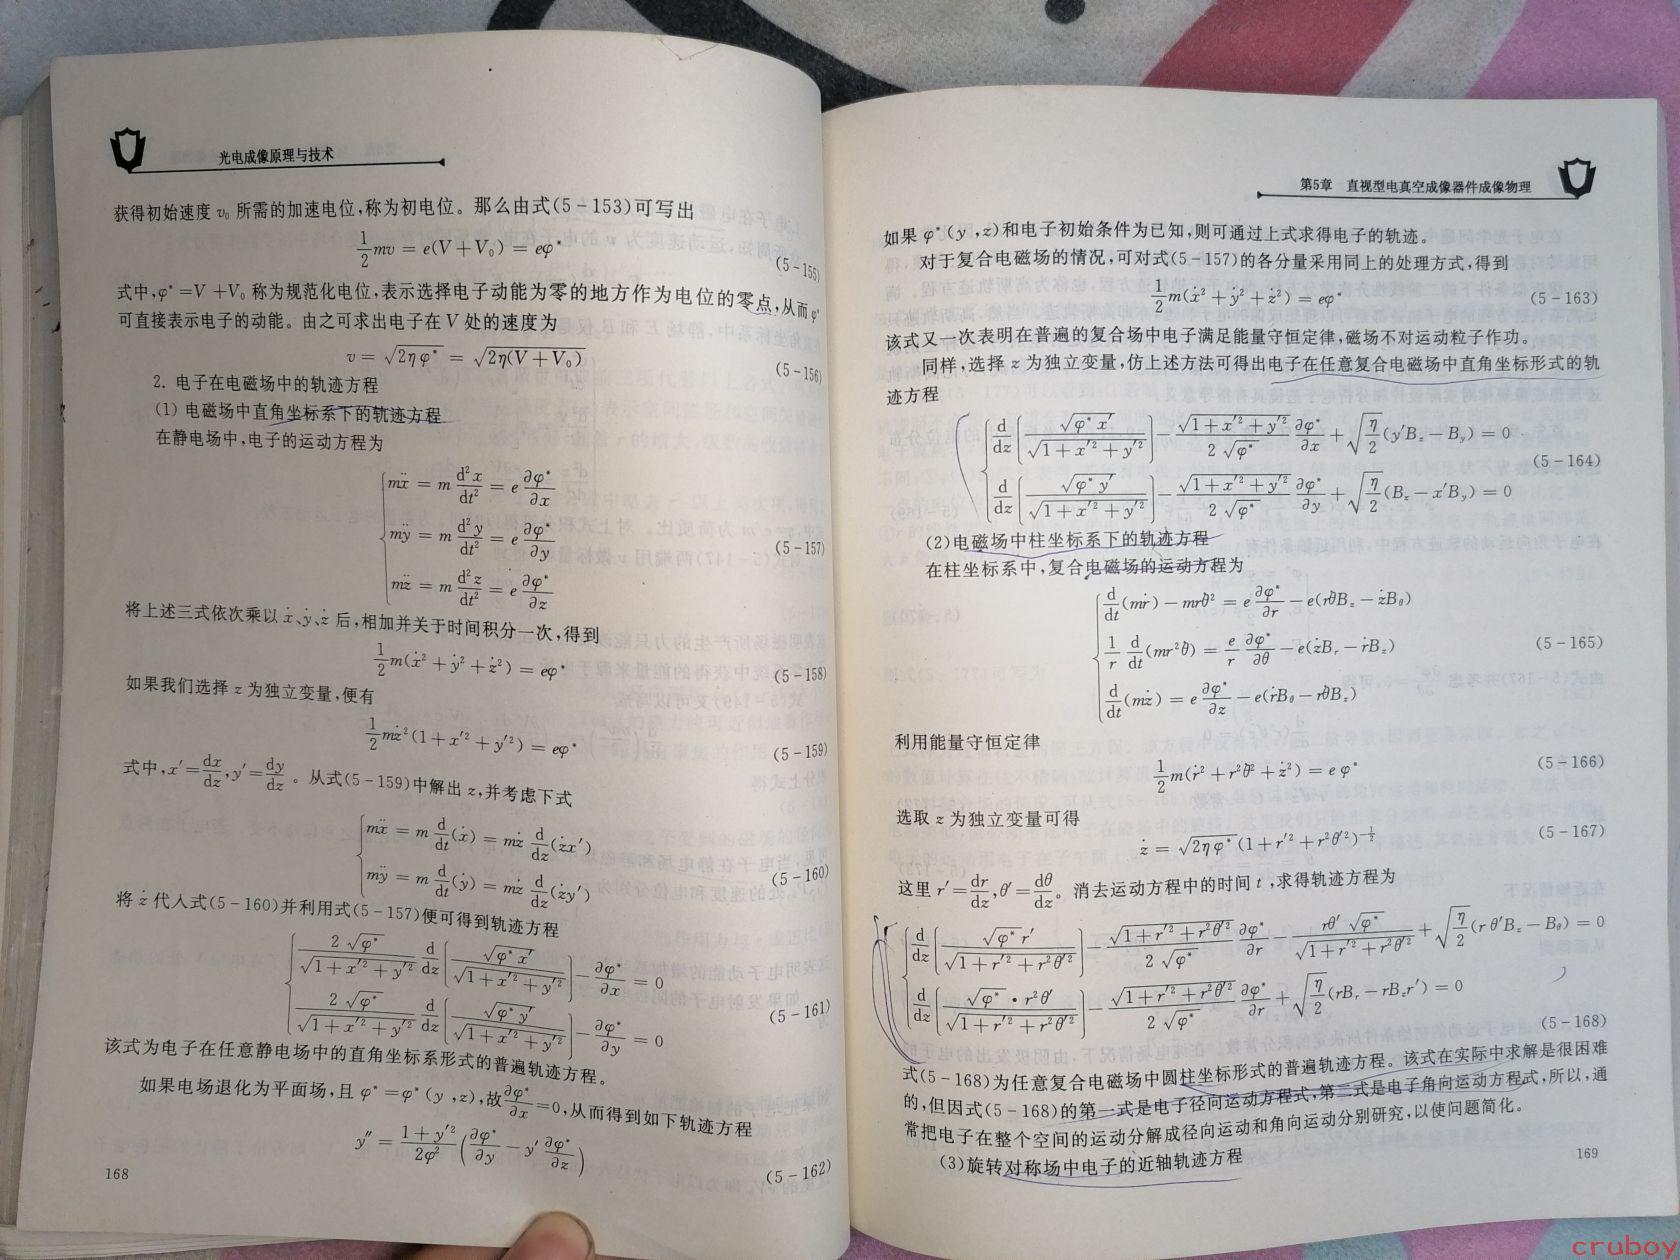 光电成像原理与技术
获得初始速度 v₀ 所需的加速电位,称为初电位。那么由式(5-153)可写出
1/2 mv = e(V+V₀) = eφ* (5-155)
式中,φ*=V+V₀ 称为规范化电位,表示选择电子动能为零的地方作为电位的零点,从而 φ*
可直接表示电子的动能。由之可求出电子在 V 处的速度为
v = √(2ηφ*) = √(2η(V+V₀)) (5-156)
2. 电子在电磁场中的轨迹方程
(1) 电磁场中直角坐标系下的轨迹方程
在静电场中,电子的运动方程为
mẍ = m d²x/dt² = e ∂φ*/∂x
mÿ = m d²y/dt² = e ∂φ*/∂y (5-157)
mz̈ = m d²z/dt² = e ∂φ*/∂z
将上述三式依次乘以 ẋ、ẏ、ż 后,相加并关于时间积分一次,得到
1/2 m(ẋ²+ẏ²+ż²) = eφ* (5-158)
如果我们选择 z 为独立变量,便有
1/2 mż²(1+x′²+y′²) = eφ* (5-159)
式中,x′=dx/dz,y′=dy/dz。从式(5-159)中解出 z,并考虑下式
mẍ = m d/dt(ẋ) = mż d/dz(żx′)
mÿ = m d/dt(ẏ) = mż d/dz(ży′) (5-160)
将 ż 代入式(5-160)并利用式(5-157)便可得到轨迹方程
2√φ*/√(1+x′²+y′²) d/dz[√φ* x′/√(1+x′²+y′²)] − ∂φ*/∂x = 0
2√φ*/√(1+x′²+y′²) d/dz[√φ* y′/√(1+x′²+y′²)] − ∂φ*/∂y = 0 (5-161)
该式为电子在任意静电场中的直角坐标系形式的普遍轨迹方程。
如果电场退化为平面场,且 φ*=φ*(y,z),故∂φ*/∂x=0,从而得到如下轨迹方程
y″ = (1+y′²)/2φ² (∂φ*/∂y − y′ ∂φ*/∂z) (5-162)
168
第5章 直视型电真空成像器件成像物理
如果 φ*(y,z)和电子初始条件为已知,则可通过上式求得电子的轨迹。
对于复合电磁场的情况,可对式(5-157)的各分量采用同上的处理方式,得到
1/2 m(ẋ²+ẏ²+ż²) = eφ* (5-163)
该式又一次表明在普遍的复合场中电子满足能量守恒定律,磁场不对运动粒子作功。
同样,选择 z 为独立变量,仿上述方法可得出电子在任意复合电磁场中直角坐标形式的轨
迹方程
d/dz[√φ* x′/√(1+x′²+y′²)] − √(1+x′²+y′²)/2√φ* ∂φ*/∂x + √(η/2)(y′B_z−B_y) = 0
d/dz[√φ* y′/√(1+x′²+y′²)] − √(1+x′²+y′²)/2√φ* ∂φ*/∂y + √(η/2)(B_z−x′B_y) = 0 (5-164)
(2)电磁场中柱坐标系下的轨迹方程
在柱坐标系中,复合电磁场的运动方程为
d/dt(mṙ) − mrθ̇² = e ∂φ*/∂r − e(rθ̇B_z−żB_θ)
1/r d/dt(mr²θ̇) = e/r ∂φ*/∂θ − e(żB_r−ṙB_z) (5-165)
d/dt(mż) = e ∂φ*/∂z − e(ṙB_θ−rθ̇B_z)
利用能量守恒定律
1/2 m(ṙ²+r²θ̇²+ż²) = eφ* (5-166)
选取 z 为独立变量可得
ż = √(2ηφ*)(1+r′²+r²θ′²)^(−1/2) (5-167)
这里 r′=dr/dz,θ′=dθ/dz。消去运动方程中的时间 t,求得轨迹方程为
d/dz[√φ* r′/√(1+r′²+r²θ′²)] − √(1+r′²+r²θ′²)/2√φ* ∂φ*/∂r rθ′√φ*/√(1+r′²+r²θ′²) + √(η/2)(rθ′B_z−B_θ) = 0
d/dz[√φ*·r²θ′/√(1+r′²+r²θ′²)] − √(1+r′²+r²θ′²)/2√φ* ∂φ*/∂r + √(η/2)(rB_r−rB_zr′) = 0
(5-168)
式(5-168)为任意复合电磁场中圆柱坐标形式的普遍轨迹方程。该式在实际中求解是很困难
的,但因式(5-168)的第一式是电子径向运动方程式,第二式是电子角向运动方程式,所以,通
常把电子在整个空间的运动分解成径向运动和角向运动分别研究,以使问题简化。
(3)旋转对称场中电子的近轴轨迹方程
169
cruboy